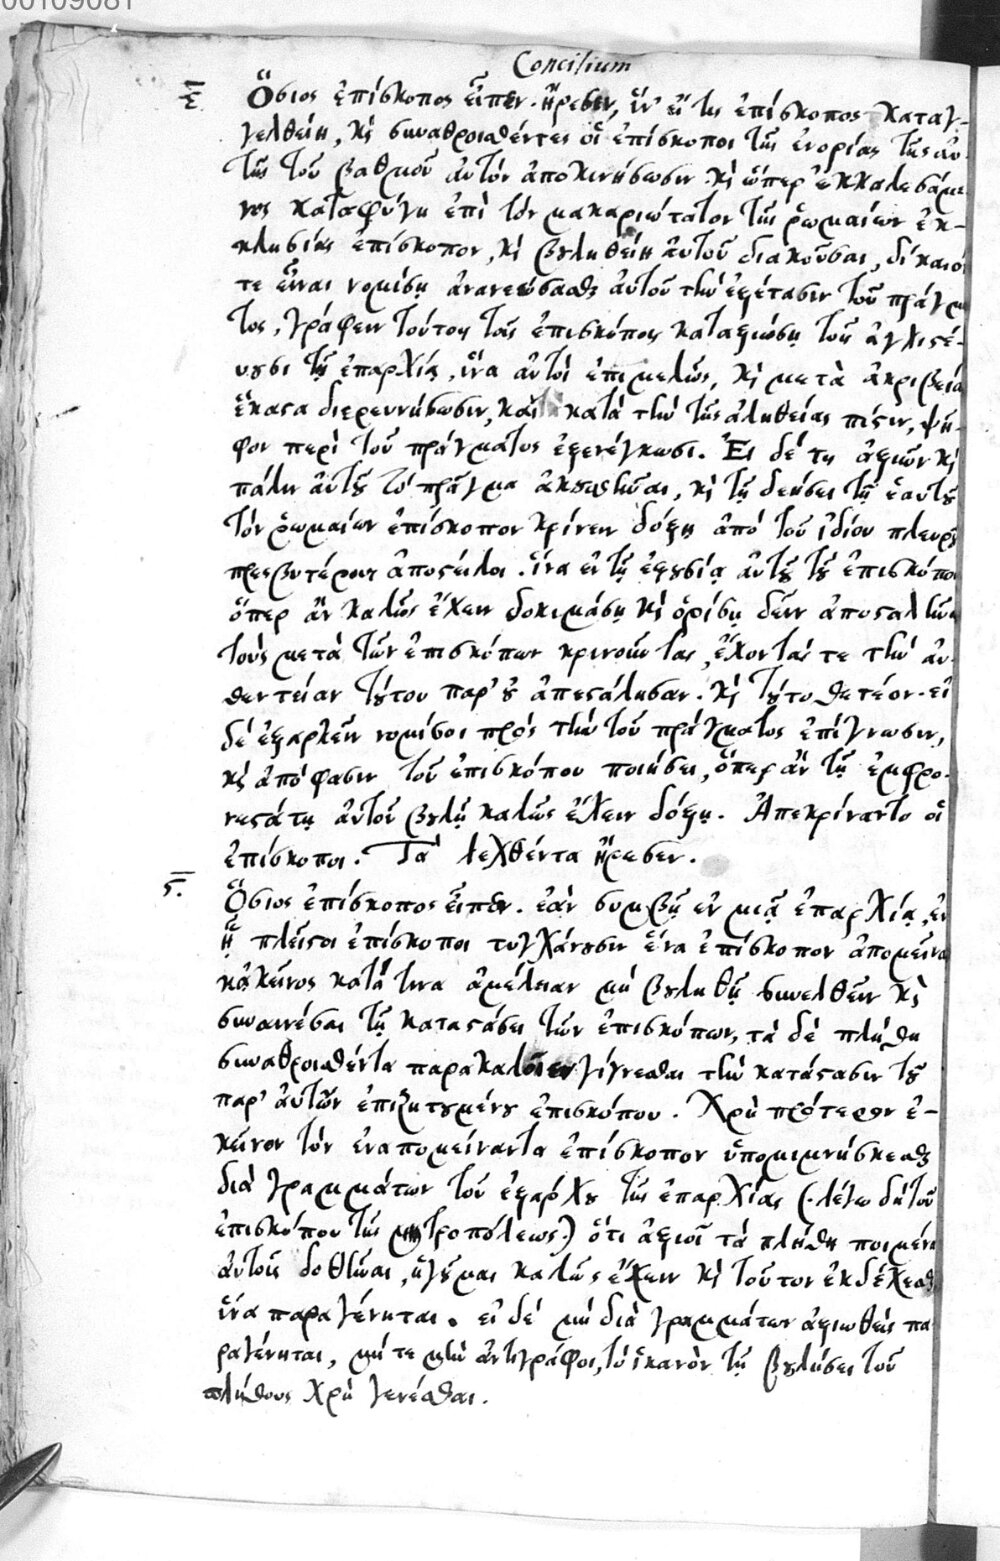 00109081
Concilium
ε̅. Ὅσιος ἐπίσκοπος εἶπεν. ἤρεσεν, ἵν' εἴ τις ἐπίσκοπος καταγ-
γελθείη, κỳ συναθροισθέντες οἱ ἐπίσκοποι τῆς ἐνορίας τῆς αὐ-
τῆς τοῦ βαθμοῦ αὐτὸν ἀποκινήσωσιν κỳ ὥσπερ ἐκκαλεσάμε
νος καταφύγῃ ἐπὶ τὸν μακαριώτατον τῆς ῥωμαίων ἐκ-
κλησίας ἐπίσκοπον, κỳ βουληθείη αὐτοῦ διακοῦσαι, δίκαιόν
τε εἶναι νομίσῃ ἀνανεώσασθαι αὐτοῦ τὴν ἐξέτασιν τοῦ πράγμα
τος, γράφειν τούτοις τοῖς ἐπισκόποις καταξιώσῃ τοῖς ἀγχιστέ-
υουσι τῇ ἐπαρχίᾳ, ἵνα αὐτοὶ ἐπιμελῶς, κỳ μετὰ ἀκριβείας
ἕκαστα διερευνήσωσιν, καὶ κατὰ τὴν τῆς ἀληθείας πίστιν, ψῆ-
φον περὶ τοῦ πράγματος ἐξενέγκωσι. Εἰ δέ τις ἀξιῶν κỳ
πάλιν αὐτοῦ τὸ πρᾶγμα ἀκουσθῆναι, κỳ τῇ δεήσει τῇ ἑαυτοῦ
τὸν ῥωμαίων ἐπίσκοπον κρίνειν δόξῃ ἀπὸ τοῦ ἰδίου πλευροῦ
πρεσβυτέρους ἀποστείλοι. ἵνα ἐν τῇ ἐξουσίᾳ αὐτοῦ τοῦ ἐπισκόπου
ὅπερ ἂν καλῶς ἔχειν δοκιμάσῃ κỳ ὁρίσῃ δεῖν ἀποσταλῆναι
τοὺς μετὰ τῶν ἐπισκόπων κρινοῦντας, ἔχοντάς τε τὴν αὐ-
θεντείαν τούτου παρ' οὗ ἀπεστάλησαν. κỳ τοῦτο θετέον. εἰ
δὲ ἐξαρκεῖν νομίσοι πρὸς τὴν τοῦ πράγματος ἐπίγνωσιν,
κỳ ἀπόφασιν τοῦ ἐπισκόπου ποιήσει, ὅπερ ἂν τῇ ἐμφρο-
νεστάτῃ αὐτοῦ βουλῇ καλῶς ἔχειν δόξῃ. Ἀπεκρίναντο οἱ
ἐπίσκοποι. Τὰ λεχθέντα ἤρεσεν.
ϛ̅. Ὅσιος ἐπίσκοπος εἶπεν. ἐὰν συμβῇ ἐν μιᾷ ἐπαρχίᾳ, ἐν
ᾗ πλεῖστοι ἐπίσκοποι τυγχάνουσιν ἕνα ἐπίσκοπον ἀπομεῖναι
κἀκεῖνος κατά τινα ἀμέλειαν μὴ βουληθῇ συνελθεῖν κỳ
συναινέσαι τῇ καταστάσει τῶν ἐπισκόπων, τὰ δὲ πλήθη
συναθροισθέντα παρακαλοῖεν γίγνεσθαι τὴν κατάστασιν τοῦ
παρ' αὐτῶν ἐπιζητουμένου ἐπισκόπου. Χρὴ πρότερον ἐ-
κεῖνον τὸν ἐναπομείναντα ἐπίσκοπον ὑπομιμνήσκεσθαι
διὰ γραμμάτων τοῦ ἐξάρχου τῆς ἐπαρχίας (λέγω δὴ τοῦ
ἐπισκόπου τῆς μητροπόλεως) ὅτι ἀξιοῖ τὰ πλήθη ποιμένα
αὐτοῖς δοθῆναι, ἡγοῦμαι καλῶς ἔχειν κỳ τοῦτον ἐκδέχεσθαι
ἵνα παραγένηται. εἰ δὲ μὴ διὰ γραμμάτων ἀξιωθεὶς πα
ραγένηται, μήτε μὴν ἀντιγράφοι, τὸ ἱκανὸν τῇ βουλήσει τοῦ
πλήθους χρὴ γενέσθαι.